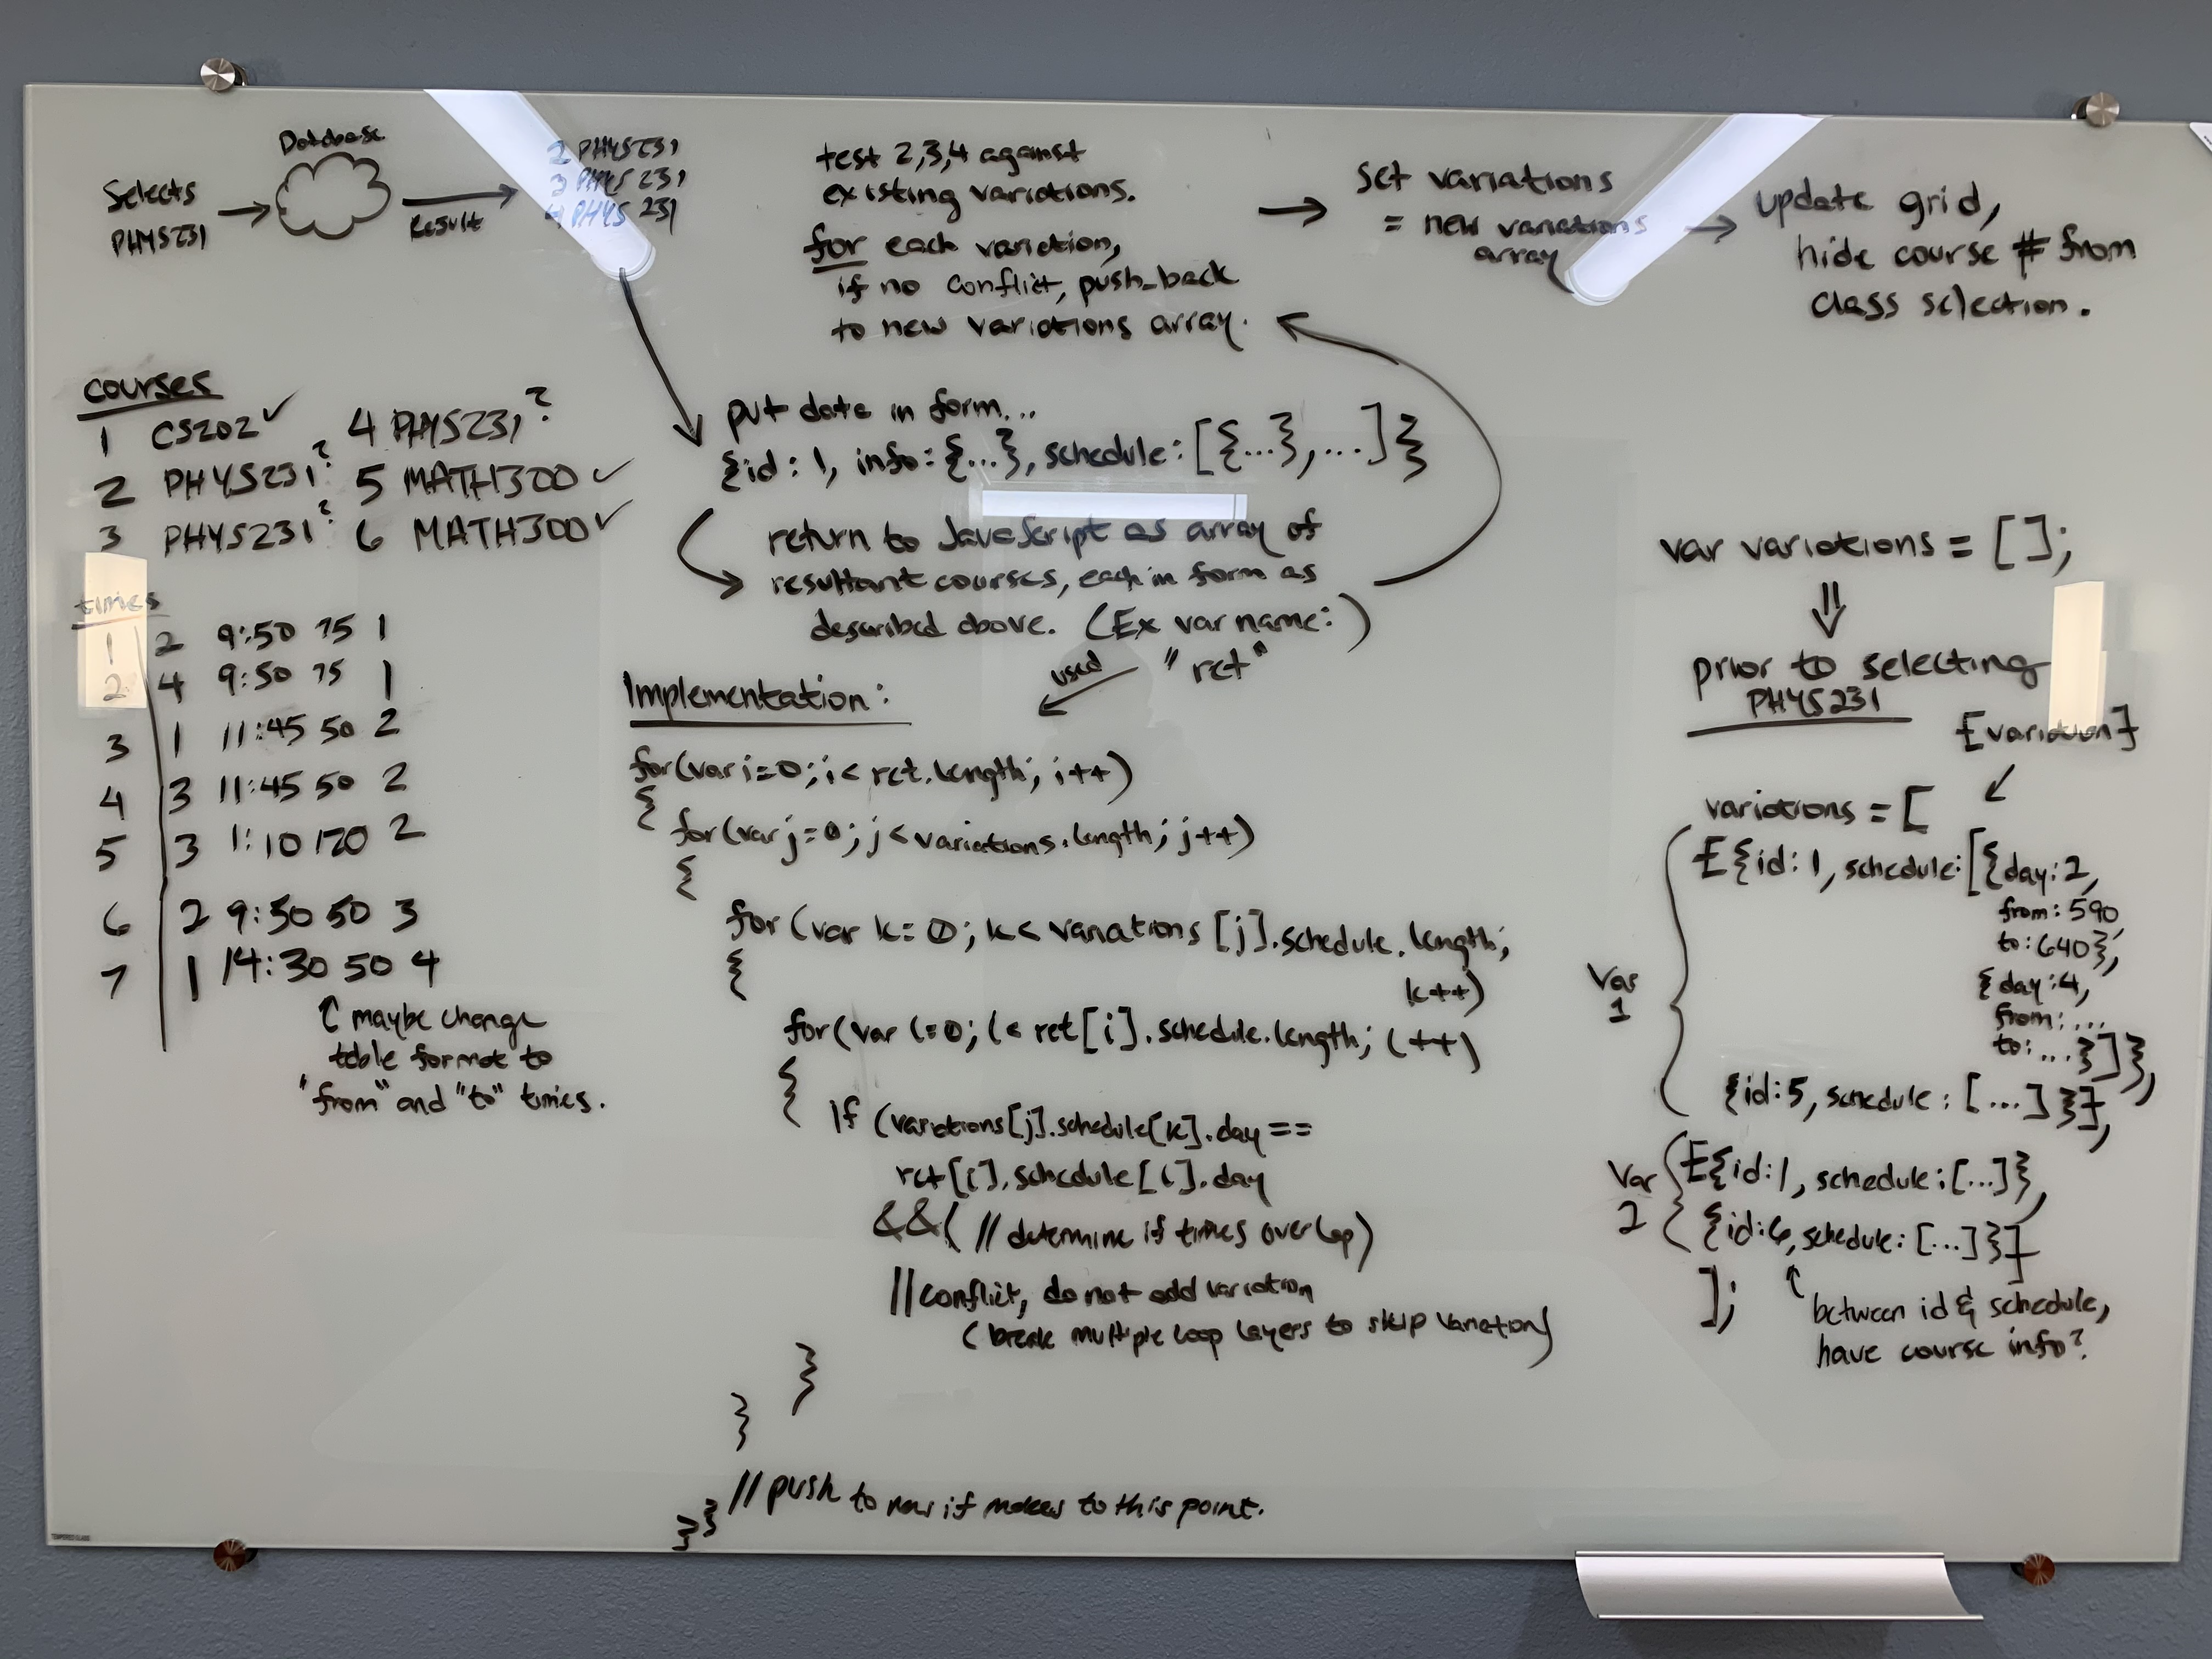 Database
Selects
PHYS231
Result
2 PHYS231
3 PHYS 231
4 PHYS 231
test 2,3,4 against
existing variations.
for each variation,
if no conflict, push_back
to new variations array.
set variations
= new variations
array
update grid,
hide course # from
class selection.
courses
1 CS202 ✓ 4 PHYS231?
2 PHYS231? 5 MATH300 ✓
3 PHYS231? 6 MATH300 ✓
times
1 2 9:50 75 1
2 4 9:50 75 1
3 1 11:45 50 2
4 3 11:45 50 2
5 3 1:10 120 2
6 2 9:50 50 3
7 1 14:30 50 4
↑ maybe change
table format to
"from" and "to" times.
put data in form...
{id: 1, info: {...}, schedule: [{...}, ...]}
return to JavaScript as array of
resultant courses, each in form as
described above. (Ex var name: )
"ret"
used
Implementation:
for(var i=0; i< ret.length; i++)
{
for(var j=0; j< variations.length; j++)
{
for (var k=0; k< variations [j].schedule.length;
k++)
{
for(var l=0; l< ret[i].schedule.length; l++)
{
If (variations[j].schedule[k].day ==
ret[i].schedule[l].day
&&( // determine if times overlap)
//conflict, do not add variation
(break multiple loop layers to skip variation)
}
}
//push to new if makes to this point.
}}
var variations = [];
⇓
prior to selecting
PHYS231
[variation]
variations = [
Var
1
[{id: 1, schedule: [{day: 2,
from: 590
to: 640},
{day: 4,
from: ...
to: ...}]},
{id: 5, schedule: [...]}],
Var
2
[{id: 1, schedule: [...]},
{id: 6, schedule: [...]}]
];
↑ between id & schedule,
have course info?